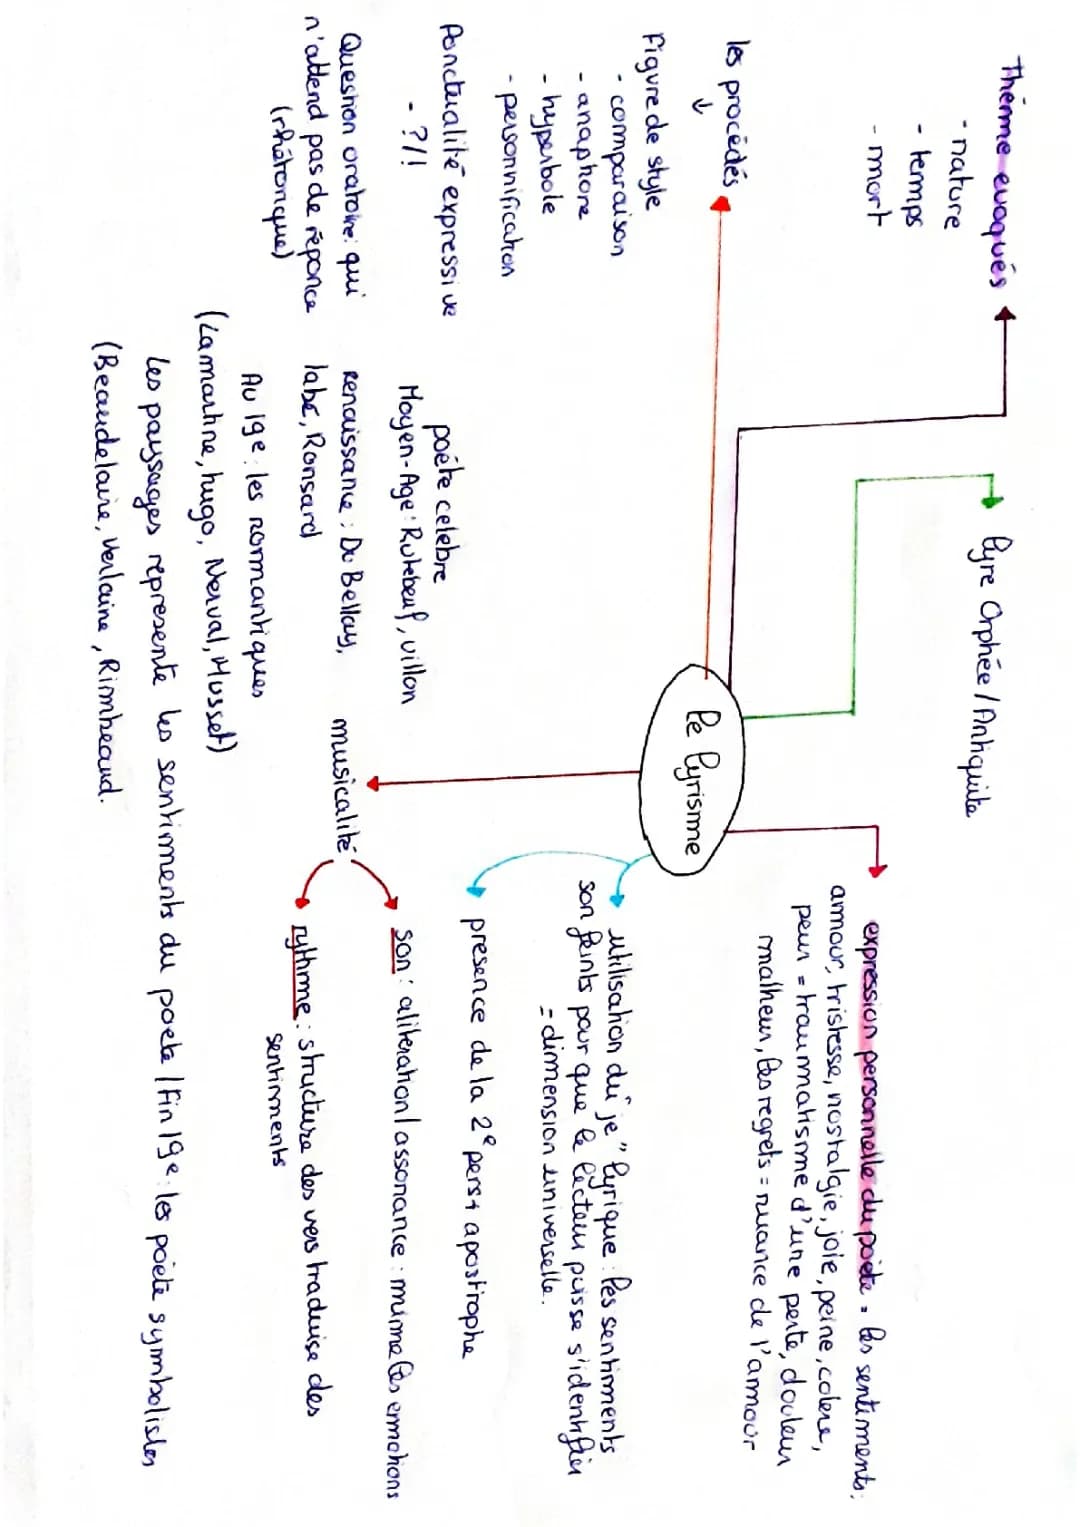 Thème evoqués
- nature
- temps
- mort
lyre Orphée / Antiquité
expression personnelle du poète = les sentiments:
amour, tristesse, nostalgie, joie, peine, colere,
peur = traumatisme d'une perte, douleur
malheur, les regrets = nuance de l'amour
les procédés
↓
Figure de style
- comparaison
- anaphore
- hyperbole
- personnification
Ponctualité expressive
- ?/!
Question oratoire: qui
n'attend pas de réponce
(rhétorique)
le lyrisme
utilisation du "je" lyrique : les sentiments
son feints pour que le lecteur puisse s'identifier
= dimension universelle.
presence de la 2e pers + apostrophe
musicalité
son : aliteration / assonance : mime les emotions
rythme : structure des vers traduise des
sentiments
poéte celebre
Moyen-Age : Rutebeuf, villon
renaissance : Du Bellay,
labé, Ronsard
Au 19e : les romantiques
(Lamartine, hugo, Nerval, Musset)
les paysages represente les sentiments du poete / Fin 19e : les poiete symbolistes
(Beaudelaire, Verlaine, Rimbeaud.